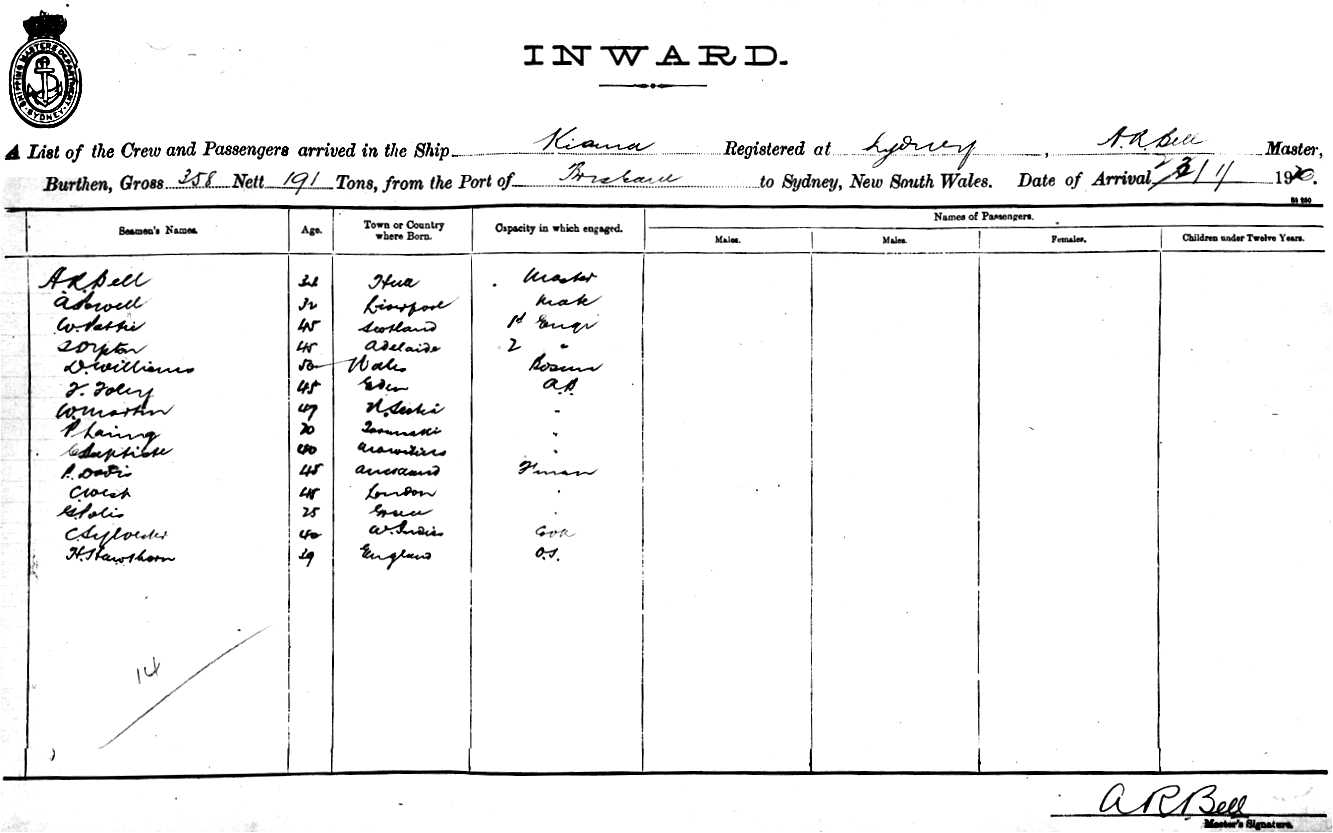 SHIPPING MASTER'S DEPARTMENT SYDNEY
INWARD.
A List of the Crew and Passengers arrived in the Ship Kiama Registered at Sydney, A.R. Bell Master,
Burthen, Gross 358 Nett 191 Tons, from the Port of Brisbane to Sydney, New South Wales. Date of Arrival 19
Names of Passengers.
Seamen's Names. Age. Town or Country where Born. Capacity in which engaged. Males. Males. Females. Children under Twelve Years.
A R Bell Master
32 Liverpool Mate
W. 45 Scotland 1st Engr
45 Adelaide 2 "
D. Williams 50 Wales Bosun
F. Foley 45 Eden A.B.
W. Martin 47 "
P Laing "
C Baptiste 40 "
P. Davis 45 Fman
C West 45 London "
G. 25 Greece "
C Sylvester 40 W. Indies Cook
H. Hawthorn England O.S.
14
A R Bell
Master's Signature.